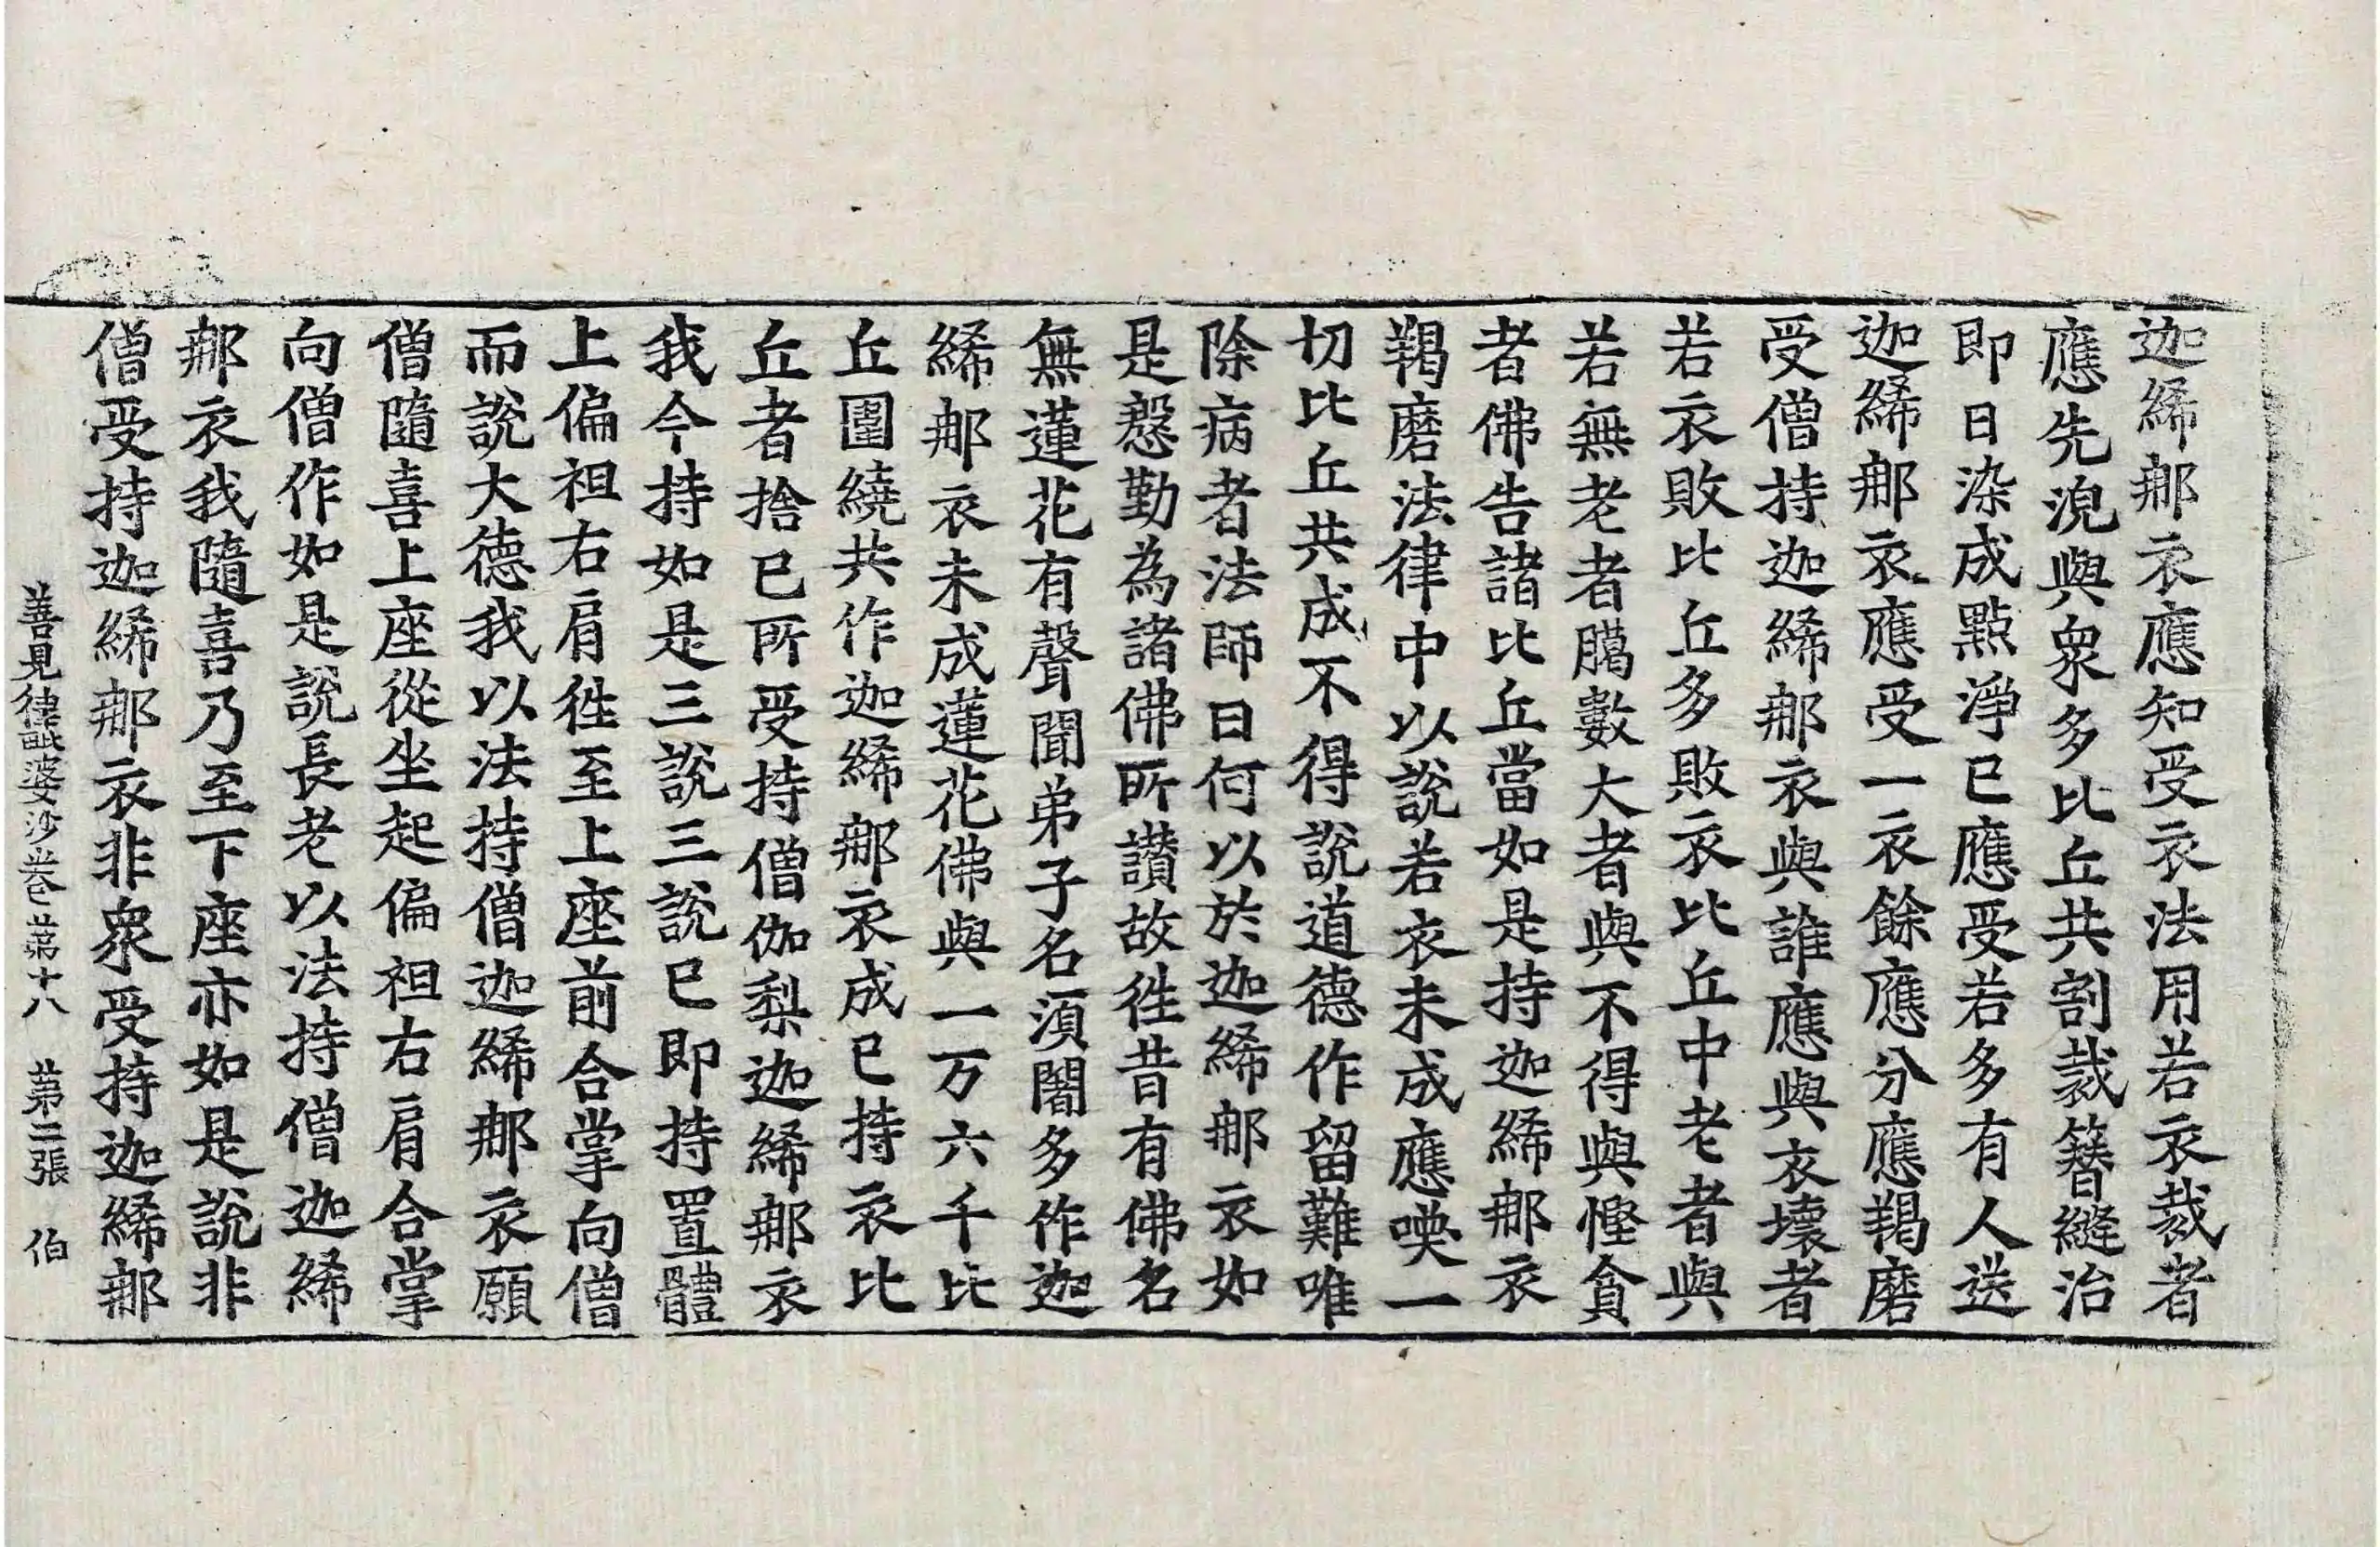 迦絺那衣應知受衣法用若衣裁者
應先浣與衆多比丘共割裁簪縫治
即日染成點淨已應受若多有人送
迦絺那衣應受一衣餘應分應羯磨
受僧持迦絺那衣與誰應與衣壞者
若衣敗比丘多敗衣比丘中老者與
若無老者臈數大者與不得與慳貪
者佛告諸比丘當如是持迦絺那衣
羯磨法律中以說若衣未成應喚一
切比丘共成不得說道德作留難唯
除病者法師曰何以於迦絺那衣如
是慇勤為諸佛所讃故徃昔有佛名
無蓮花有聲聞弟子名須闍多作迦
絺那衣未成蓮花佛與一万六千比
丘圍繞共作迦絺那衣成已持衣比
丘者捨已所受持僧伽梨迦絺那衣
我今持如是三說三說已即持置體
上偏袒右肩徃至上座前合掌向僧
而說大德我以法持僧迦絺那衣願
僧隨喜上座從坐起偏袒右肩合掌
向僧作如是說長老以法持僧迦絺
那衣我隨喜乃至下座亦如是說非
僧受持迦絺那衣非衆受持迦絺那
善見律毗婆沙卷苐十八 苐二張 伯